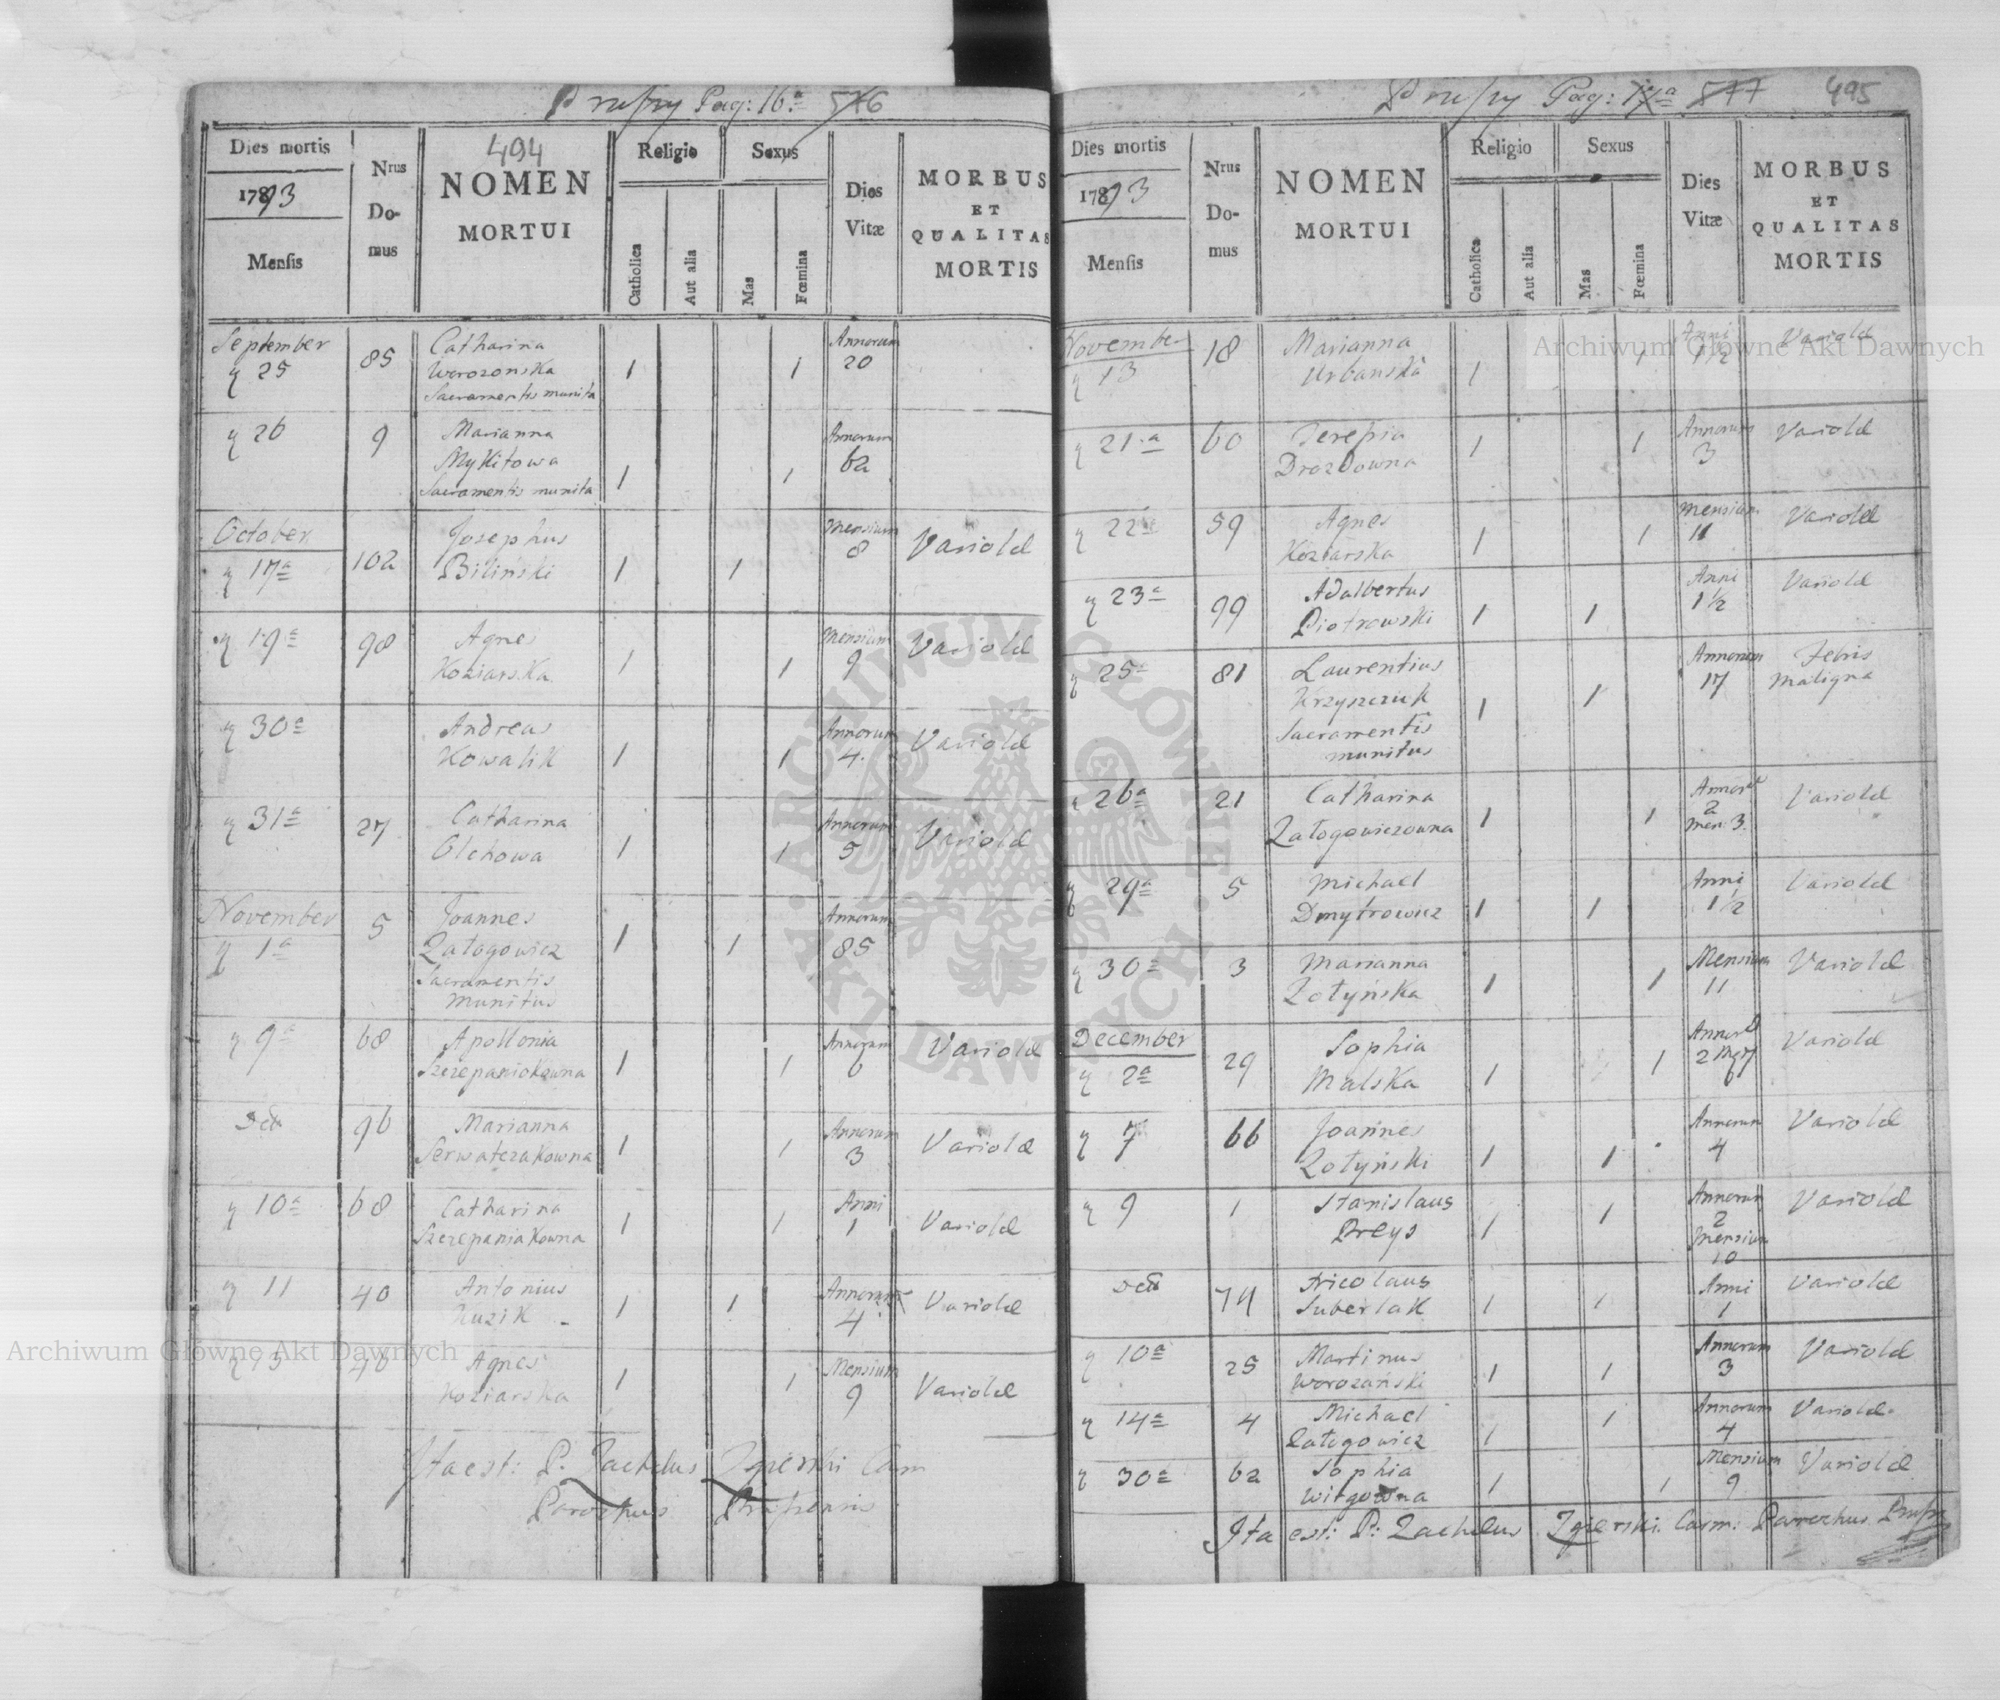 Prussy Pag: 16.a 576
494
Dies mortis
1793
Mensis
Nrus
Do-
mus
NOMEN
MORTUI
Religio
Catholica
Aut alia
Sexus
Mas
Fœmina
Dies
Vitæ
MORBUS
ET
QUALITAS
MORTIS
September
25 85 Catharina Worozonska Sacramentis munita 1 1 Annorum 20
26 9 Marianna Mykitowa Sacramentis munita 1 1 Annorum 62
October
17a 102 Josephus Biliński 1 1 Mensium 8 Variolæ
19a 98 Agnes Koziarska 1 1 Mensium 9 Variolæ
30a Andreas Kowalik 1 1 Annorum 4 Variolæ
31a 27 Catharina Olchowa 1 1 Annorum 5 Variolæ
November
1a 5 Joannes Załogowicz Sacramentis munitus 1 1 Annorum 85
9a 68 Apollonia Szczepaniakowna 1 1 Annorum 6 Variolæ
detto 96 Marianna Serwatczakowna 1 1 Annorum 3 Variolæ
10a 68 Catharina Szczepaniakowna 1 1 Anni 1 Variolæ
11 40 Antonius Kuzik 1 1 Annorum 4 Variolæ
Agnes Koziarska 1 1 Mensium 9 Variolæ
Ita est: P. Zgierski Cam
Parochus
Prussy Pag: 17a 577
495
Dies mortis
1793
Mensis
Nrus
Do-
mus
NOMEN
MORTUI
Religio
Catholica
Aut alia
Sexus
Mas
Fœmina
Dies
Vitæ
MORBUS
ET
QUALITAS
MORTIS
November
13 18 Marianna Urbanska 1 1 Anni 1 1/2 Variolæ
21a 60 Teressia Drozdowna 1 1 Annorum 3 Variolæ
22a 59 Agnes Koziarska 1 1 Mensium 11 Variolæ
23a 99 Adalbertus Piotrowski 1 1 Anni 1 1/2 Variolæ
25a 81 Laurentius Krzyszczuk Sacramentis munitus 1 1 Annorum 17 Febris maligna
26a 21 Catharina Załogowiczowna 1 1 Annor 2 Men: 3. Variolæ
29a 5 Michael Dmytrowicz 1 1 Anni 1 1/2 Variolæ
30a 3 Marianna Zołyńska 1 1 Mensium 11 Variolæ
December
2a 29 Sophia Malska 1 1 Annor 2 Variolæ
7 66 Joannes Zołyński 1 1 Annorum 4 Variolæ
9 1 Stanislaus Preys 1 1 Annorum 2 Mensium 10 Variolæ
detto 74 Nicolaus Suberlak 1 1 Anni 1 Variolæ
10a 25 Martinus Worozański 1 1 Annorum 3 Variolæ
14a 4 Michael Załogowicz 1 1 Annorum 4 Variolæ
30a 62 Sophia Witgowna 1 1 Mensium 9 Variolæ
Ita est: P: Zgierski Cam: Parochus
Archiwum Główne Akt Dawnych
Archiwum Główne Akt Dawnych
ARCHIWUM GŁÓWNE AKT DAWNYCH